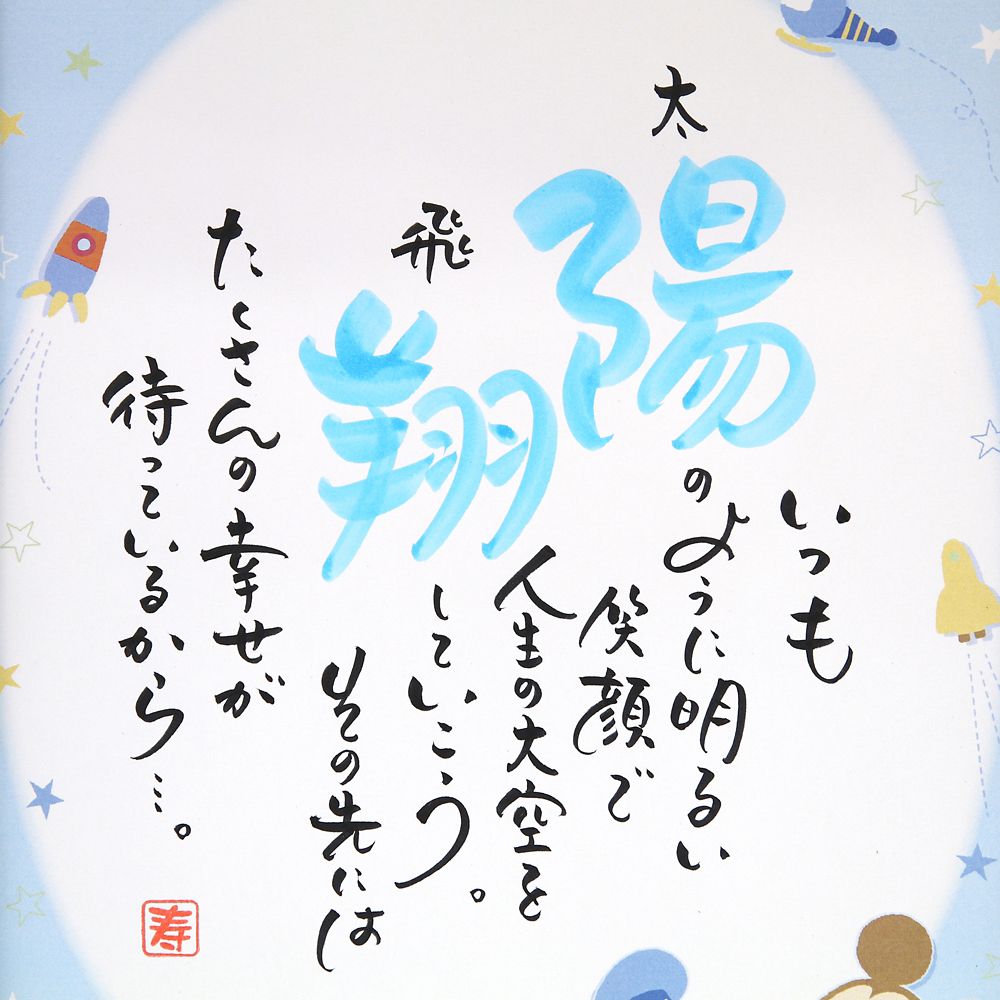 いつも
太陽のように明るい
笑顔で
人生の大空を
飛翔していこう。
その先には
たくさんの幸せが
待っているから…。
寿